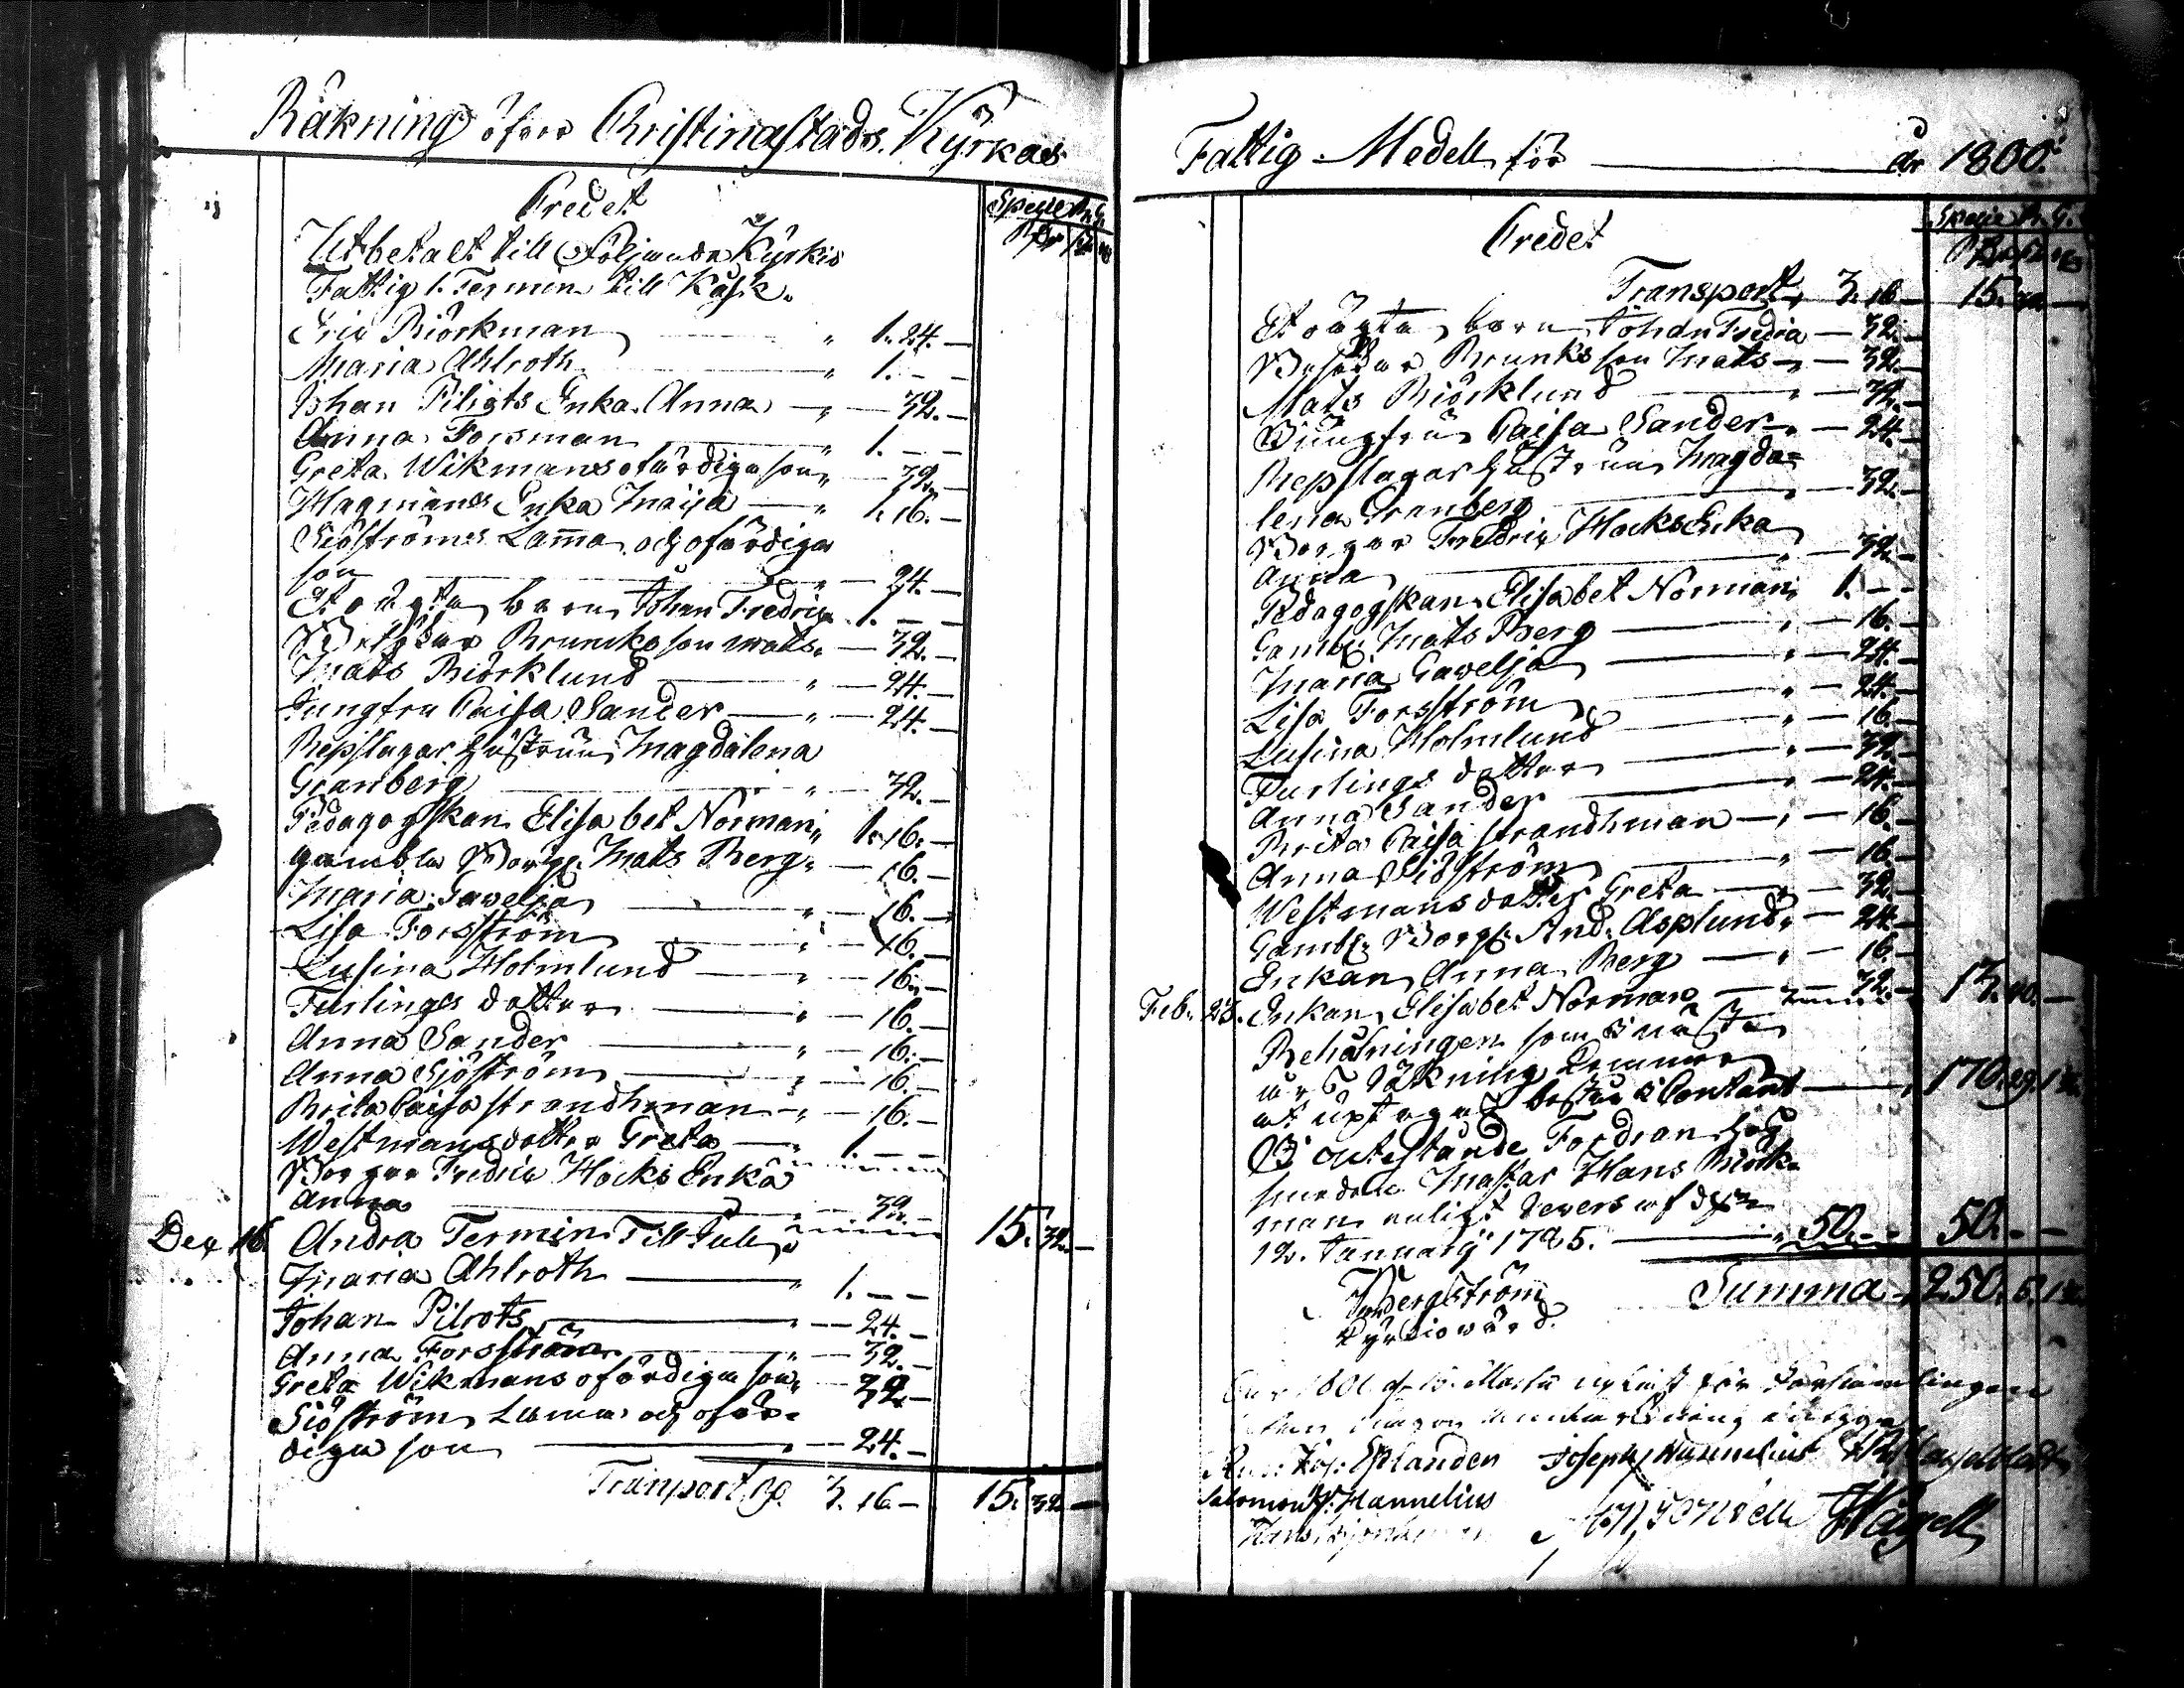 Räkning öfver Christinæstads Kyrkas
Credet
Spesie Rr. G.
Utbetalt till Följande Kyrkis
Fattig 1. Termin till Påsk.
Eric Biörkman " 1. 24. —
Maria Ahlroth " 1. — —
Johan Piligts Enka Anna " — 32. —
Anna Forsman " 1. — —
Greta Wikmans ofärdiga son " — 32. —
Hagmans Enka Maija " 1. 16. —
Siöströms Lama och ofärdiga
son " — 24. —
Et oägta barn Johan Fredric 1. — —
Brunks son Mats " — 32. —
Mats Biörklund " — 24. —
Jungfru Caisa Sander " — 24. —
Repslagar hustrun Magdalena
Granberg " — 32. —
Pedagogskan Elisabet Norman " 1. 16. —
gambla Borg. Mats Berg " — 16. —
Maria Gavelja " — 16. —
Lisa Forsström " — 16. —
Lusina Holmlund " — 16. —
Furlings dotter " — 16. —
Anna Sander " — 16. —
Anna Sjöström " — 16. —
Brita Caisa Strandhman " — 16. —
Westmans dotter Greta " 1. — —
Borgar Fredric Hocks Enka
Anna " — 32. —
Dex 16. Andra Termin Till Jull 15. 32. —
Maria Ahlroth " 1. — —
Johan Pilrots " — 24. —
Anna Forsström " — 32. —
Greta Wikmans ofärdiga son " — 32. —
Siöström Lama och ofär-
diga son " — 24. —
Transport 3. 16 — 15. 32 —
Fattig-Medell för år 1800.
Credet
Spesie Rr. G.
Transport 3. 16 — 15. 32. —
Et oägta barn Johan Fredric — 32. —
Brunks son Mats " — 32. —
Mats Biörklund " — 32. —
Jungfru Caisa Sander " — 24. —
Repslagar hustrun Magda-
lena Granberg " — 32. —
Borgar Fredric Hocks Enka
Anna " — 32. —
Pedagogskan Elisabet Norman 1. — —
Gambl. Mats Berg " — 16. —
Maria Gavelja " — 24. —
Lisa Forsström " — 24. —
Lusina Holmlund " — 16. —
Furlings dotter " — 32. —
Anna Sander " — 24. —
Brita Caisa Strandhman " — 16. —
Anna Siöström " — 16. —
Westmans dotter Greta " — 32. —
Gambl. Borg. And. Asplund " — 24. —
Enkan Anna Berg " — 16. —
Feb. 28. Enkan Elisabet Norman — 32. — 13. 40. —
Behålningen som i nästa
års Räkning kommer
at uptagas består i Contant 170.
I utestående Fordran hos
smeden Mästar Hans Biörk-
man enligt Revers af den
12. January 1795. " 50. — — 50. — —
Bergström Summa 250.
Kyrkiovärd.
Joh: Eklanden Joseph Hannelius
Salomon Hannelius
Hagell